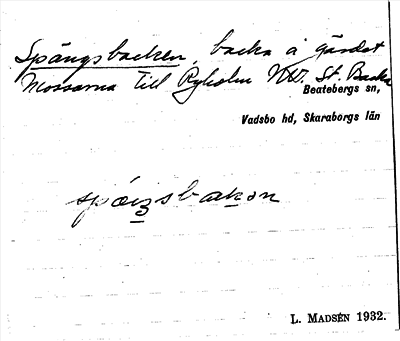 Spångsbacken, backa å gärdet
Mossarna till Ryholm NW. St. Backa
Beatebergs sn,
Vadsbo hd, Skaraborgs län
L. MADSÉN 1932.